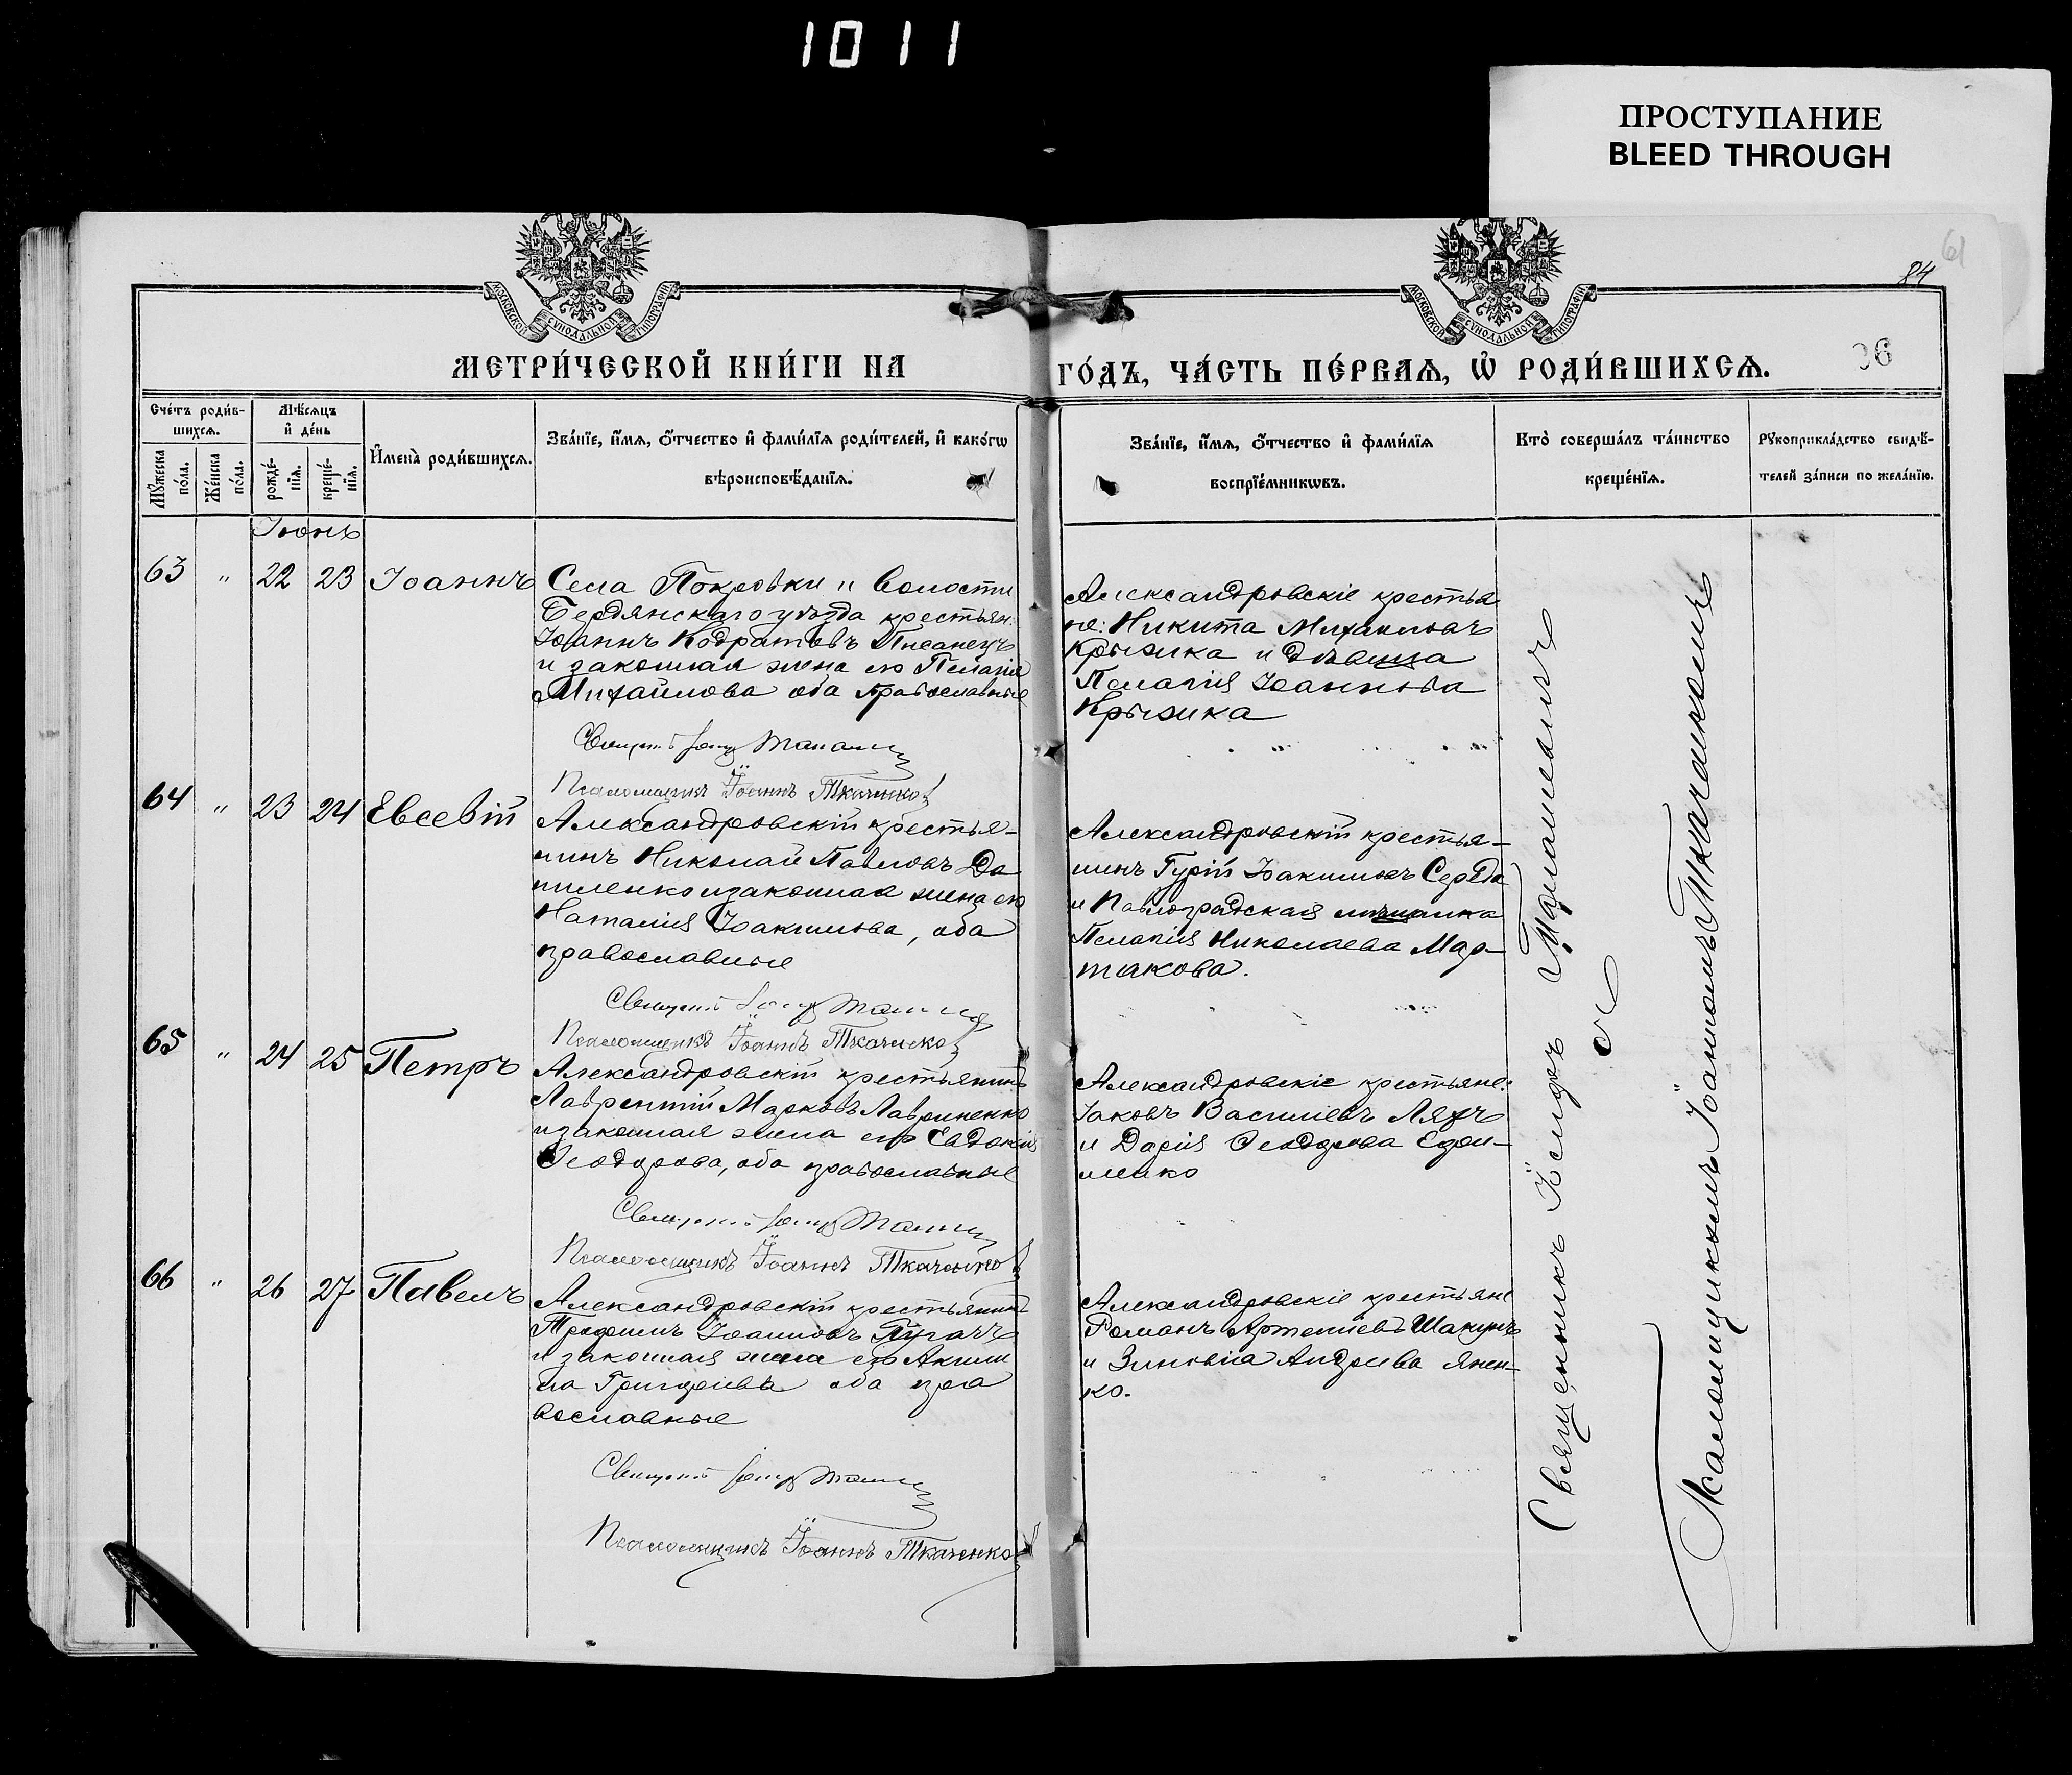 1011
ПРОСТУПАНИЕ
BLEED THROUGH
61
84
96
МОСКОВСКОЙ СѴНОДАЛЬНОЙ ТИПОГРАФІИ
МОСКОВСКОЙ СѴНОДАЛЬНОЙ ТИПОГРАФІИ
МЕТРИ́ЧЕСКОЙ КНИ́ГИ НА
ГО́ДЪ, ЧА́СТЬ ПЕ́РВАѦ, Ѡ҆ РОДИ́ВШИХСѦ.
Сче́тъ роди́в-
шихсѧ.
Мꙋжеска
по́ла.
Же́нска
по́ла.
Мѣ́сѧцъ
и҆ де́нь
рожде́-
нїѧ.
креще́-
нїѧ.
И҆мена̀ роди́вшихсѧ.
Зва́нїе, и҆́мѧ, ѻ҆́тчество и҆ фами́лїѧ роди́телей, и҆ како́гѡ
вѣроисповѣ́данїѧ.
Зва́нїе, и҆́мѧ, ѻ҆́тчество и҆ фами́лїѧ
воспрїе́мникѡвъ.
Кто̀ соверша́лъ та́инство
креще́нїѧ.
Рꙋкоприкла́дство свидѣ́-
телей за́писи по жела́нїю.
Іюнь
63 " 22 23 Іоаннъ
Села Покровки и волости
Бердянскаго уѣзда крестьян.
Іоаннъ Кодратовъ Писанецъ
и законная жена его Пелагія
Михаилова оба православные
Священ. Томашевичъ
Псаломщикъ Іоаннъ Ткаченко
Александровскіе крестья
не: Никита Михаиловъ
Крыжка и дѣвица
Пелагія Іоаннова
Крыжка
64 " 23 24 Евсевій
Александровскій крестья-
нинъ Николай Павловъ Да
ниленко и законная жена его
Наталія Іоакимова, оба
православные
Священ.
Псаломщикъ Іоаннъ Ткаченко
Александровскій крестья-
нинъ Гурій Іоакимовъ Середа
и Павлоградская мѣщанка
Пелагія Николаева Мар-
такова.
65 " 24 25 Петръ
Александровскій крестьянинъ
Лаврентій Марковъ Лавриненко
и законная жена его Евдокія
Ѳеодорова, оба православные
Священ.
Псаломщикъ Іоаннъ Ткаченко
Александровскіе крестьяне:
Іаковъ Василіевъ Ляхъ
и Дарія Ѳеодорова
66 " 26 27 Павелъ
Александровскій крестьянинъ
Трофимъ Іоанновъ Пугачъ
и законная жена его Акили
на Григорьева оба пра
вославные
Священ.
Псаломщикъ Іоаннъ Ткаченко
Александровскіе крестьяне
Романъ Артеміевъ Шакунъ
и Зиновія Андреева Янен-
ко.
Священникъ
съ
Псаломщикомъ Іоанномъ Ткаченкомъ